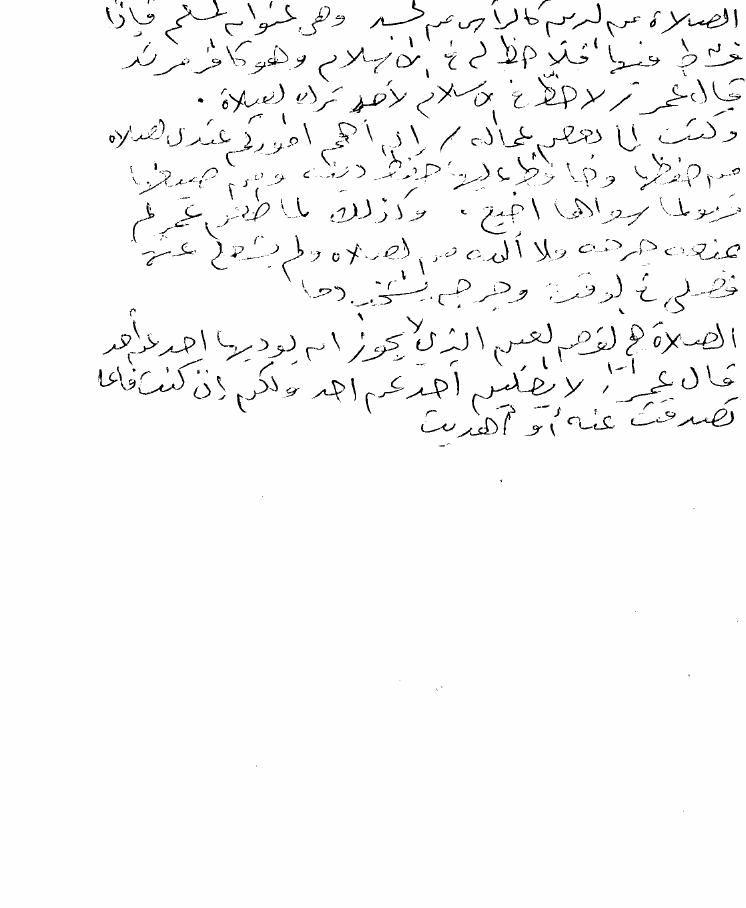 الصلاة من الدين كالرأس من الجسد وهي عنوان المسلم فإذا
فرط فيها فلا حظ له في الإسلام وهو كافر مرتد
قال عمر لا حظ في الإسلام لأحد ترك الصلاة .
وكتب إلى بعض عماله / إن أهم أموركم عندي الصلاة
من حفظها وحافظ عليها حفظ دينه ومن ضيعها
فهو لما سواها أضيع . وكذلك لما طعن عمر لم
تمنعه جراحه ولا آلامه من الصلاة ولم يشغل عنها
فصلى في الوقت وجرحه يشخب دما
الصلاة هي الفرض العين الذي لا يجوز ان يوديها احد عن أحد
قال عمر لا يصلين أحد عن احد ولكن إن كنت فاعلا
تصدقت عنه أو أهديت